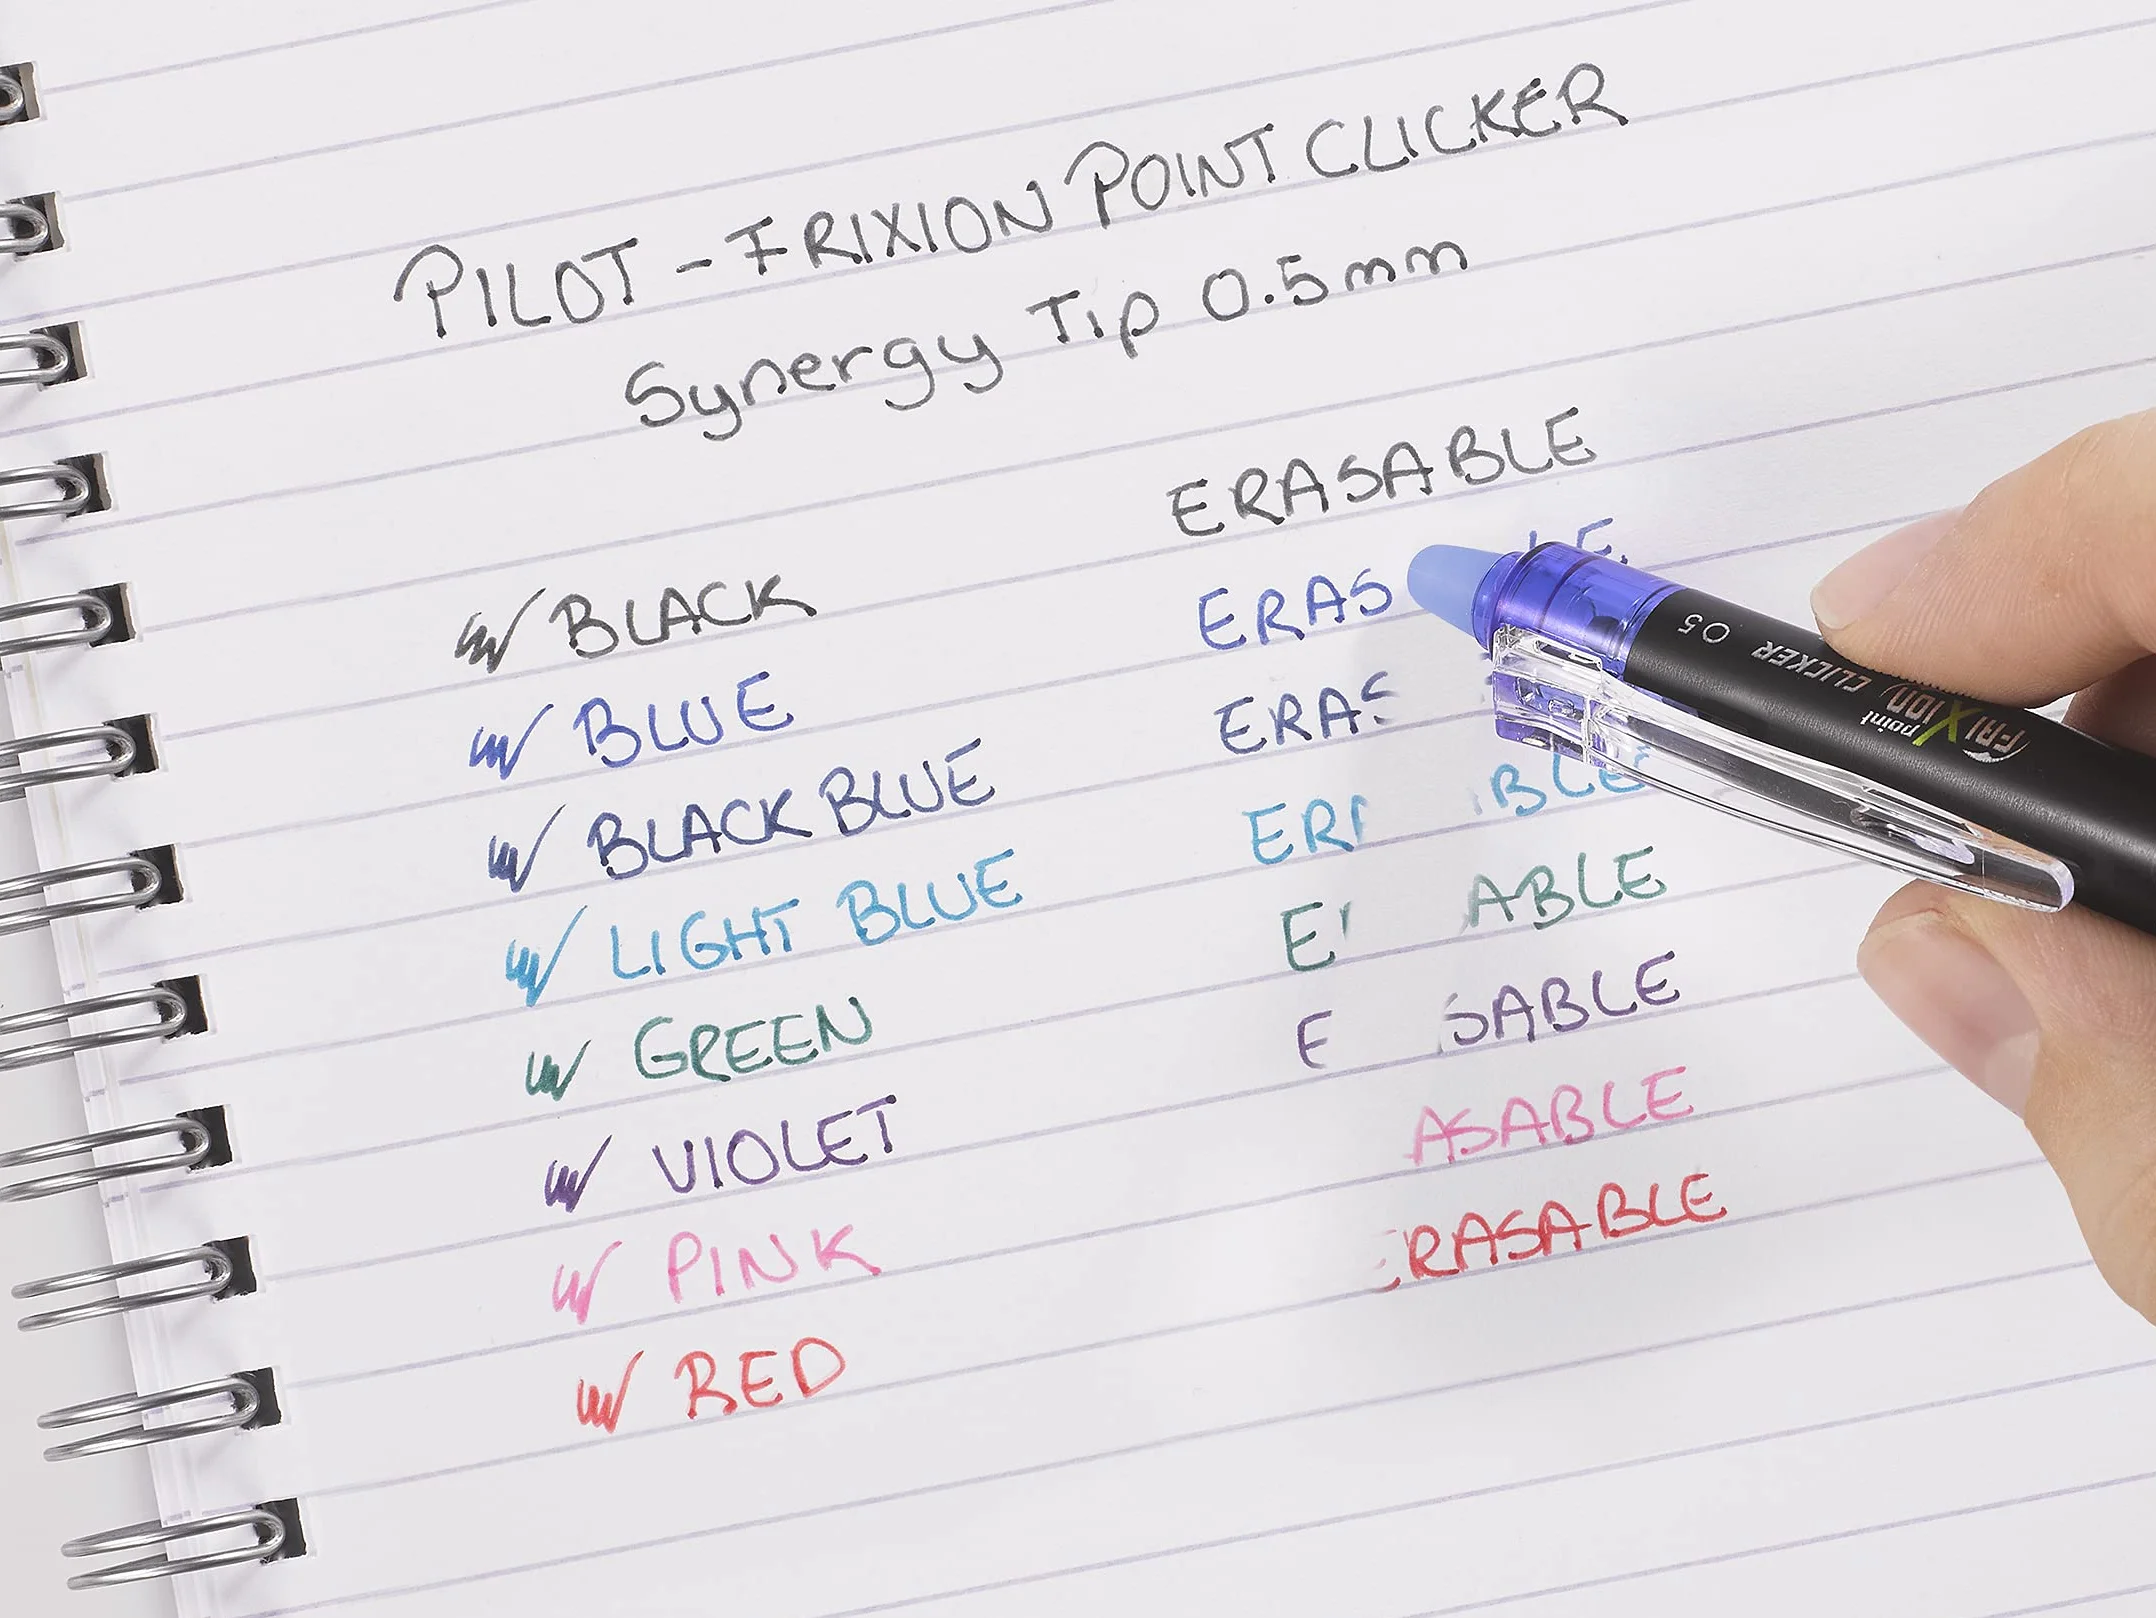 PILOT - FRIXION POINT CLICKER
Synergy Tip 0.5mm
ERASABLE
BLACK
ERAS LE
BLUE
ERAS
BLACK BLUE
ER BLE
LIGHT BLUE
E ABLE
GREEN
E SABLE
VIOLET
ASABLE
PINK
ERASABLE
RED
point FRIXION CLICKER 05